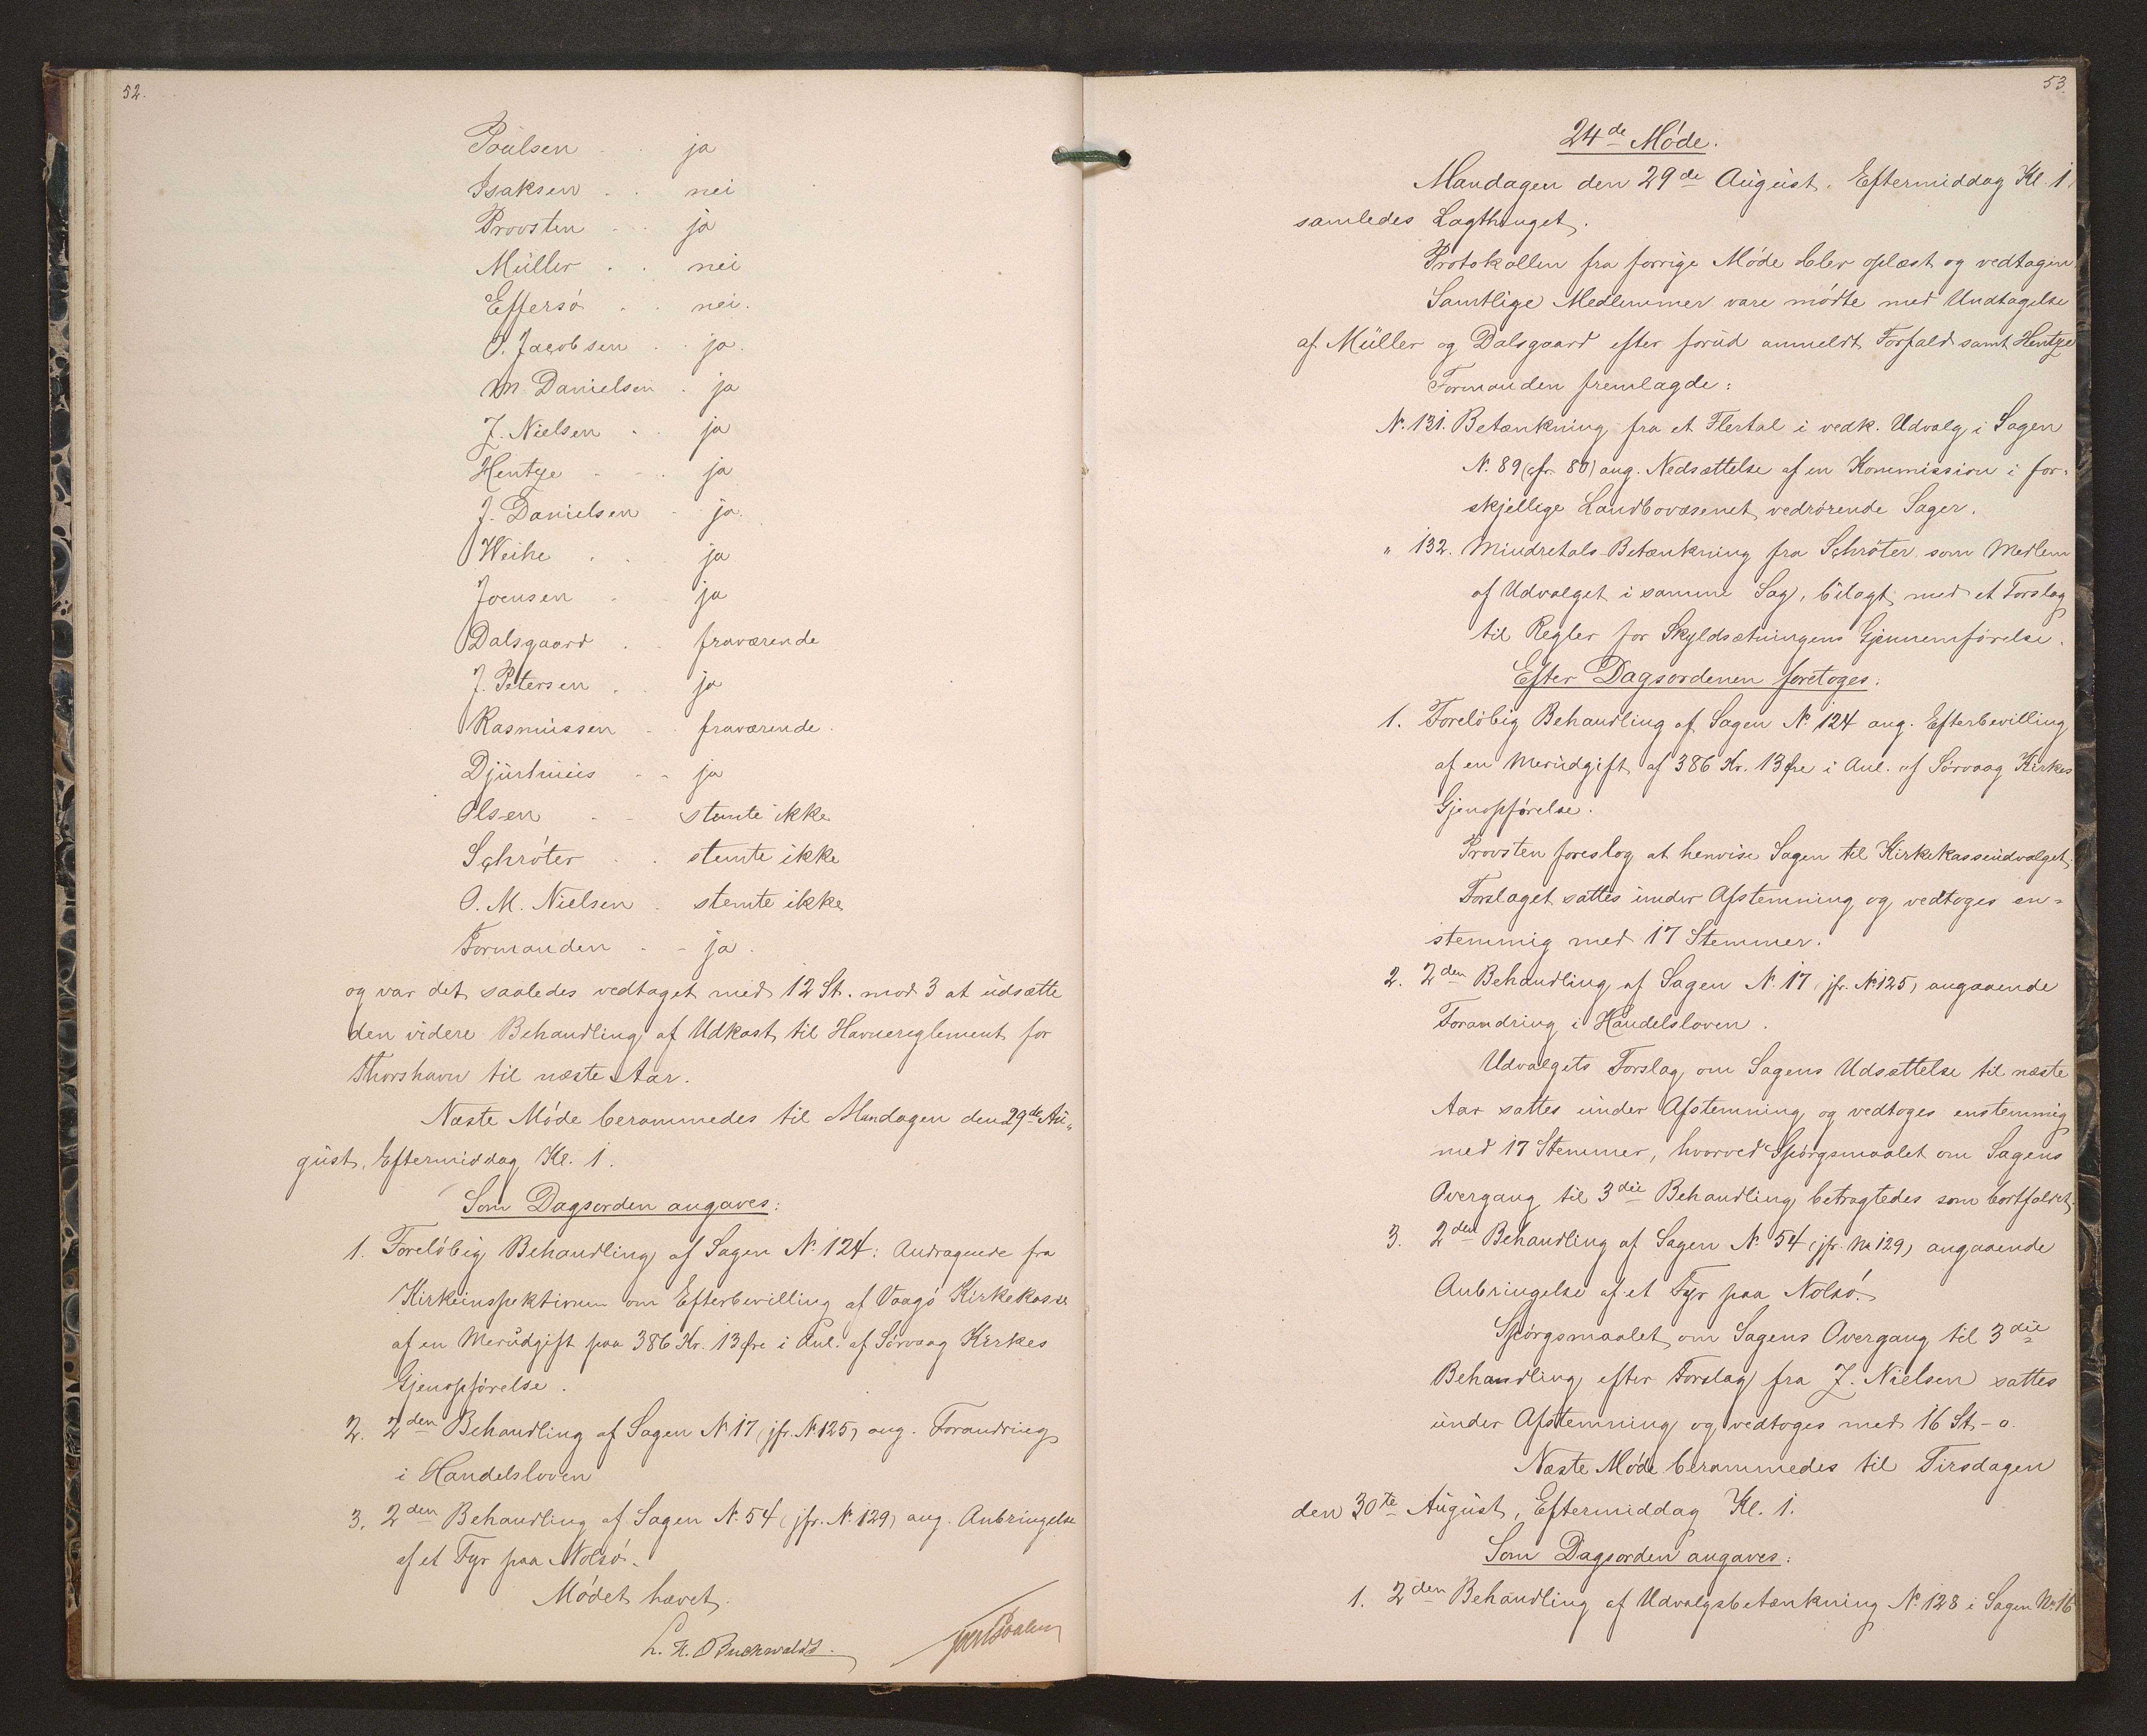 52.
Poulsen . . ja
Isaksen . . nei
Provsten . . ja
Müller . . nei
Effersö . . nei.
J. Jacobsen . . ja.
M. Danielsen . ja
Z. Nielsen . . ja
Hentze - - . ja
J. Danielsen - ja.
Weihe . . ja
Joensen . . ja
Dalsgaard . . fraværende
J. Petersen . . ja
Rasmussen . . fraværende.
Djurhuus - - ja
Olsen - - stemte ikke
Schröter . . stemte ikke
O. M. Nielsen . stemte ikke
Formanden - - ja.
og var det saaledes vedtaget med 12 St. mod 3 at udsætte
den videre Behandling af Udkast til Havnereglement for
Thorshavn til næste Aar.
Næste Möde berammedes til Mandagen den 29de Au-
gust, Eftermiddag Kl. 1.
Som Dagsorden angaves:
1. Forelöbig Behandling af Sagen No. 124: Andragende fra
Kirkeinspektionen om Efterbevilling af Vaagö Kirkekasse
af en Merudgift paa 386 Kr. 13 Øre i Anl. af Sörvaag Kirkes
Gjenopförelse.
2. 2den Behandling af Sagen No. 17 (jfr. No. 125) ang. Forandring
i Handelsloven
3. 2den Behandling af Sagen No. 54 (jfr. No. 129) ang. Anbringelse
af et Fyr paa Nolsö.
Mödet hævet.
L. H. Buchwaldt.
53.
24de Möde.
Mandagen den 29de August, Eftermiddag Kl. 1,
samledes Lagthinget.
Protokollen fra forrige Möde blev oplæst og vedtagen.
Samtlige Medlemmer vare mödte med Undtagelse
af Müller og Dalsgaard efter forud anmeldt Forfald samt Hentze
Formanden fremlagde:
No. 131. Betænkning fra et Flertal i vedk. Udvalg i Sagen
No. 89 (jfr. 80) ang. Nedsættelse af en Kommission i for-
skjellige Landbovæsenet vedrörende Sager.
" 132. Mindretals-Betænkning fra Schröter som Medlem
af Udvalget i samme Sag, bilagt med et Forslag
til Regler for Skyldsætningens Gjennemförelse.
Efter Dagsordenen foretoges:
1. Forelöbig Behandling af Sagen No. 124 ang. Efterbevilling
af en Merudgift af 386 Kr. 13 Øre i Anl. af Sörvaag Kirkes
Gjenopförelse.
Provsten foreslog at henvise Sagen til Kirkekasseudvalget.
Forslaget sattes under Afstemning og vedtoges en-
stemmig med 17 Stemmer.
2. 2den Behandling af Sagen No. 17 (jfr. No. 125) angaaende
Forandring i Handelsloven.
Udvalgets Forslag om Sagens Udsættelse til næste
Aar sattes under Afstemning og vedtoges enstemmig
med 17 Stemmer, hvorved Spörgsmaalet om Sagens
Overgang til 3die Behandling betragtedes som bortfaldet.
3. 2den Behandling af Sagen No. 54 (jfr. No. 129) angaaende
Anbringelse af et Fyr paa Nolsö.
Spörgsmaalet om Sagens Overgang til 3die
Behandling efter Forslag fra Z. Nielsen sattes
under Afstemning og vedtoges med 16 St. - o.
Næste Möde berammedes til Tirsdagen
den 30te August, Eftermiddag Kl. 1.
Som Dagsorden angaves:
1. 2den Behandling af Udvalgsbetænkning No. 128 i Sagen No. 16